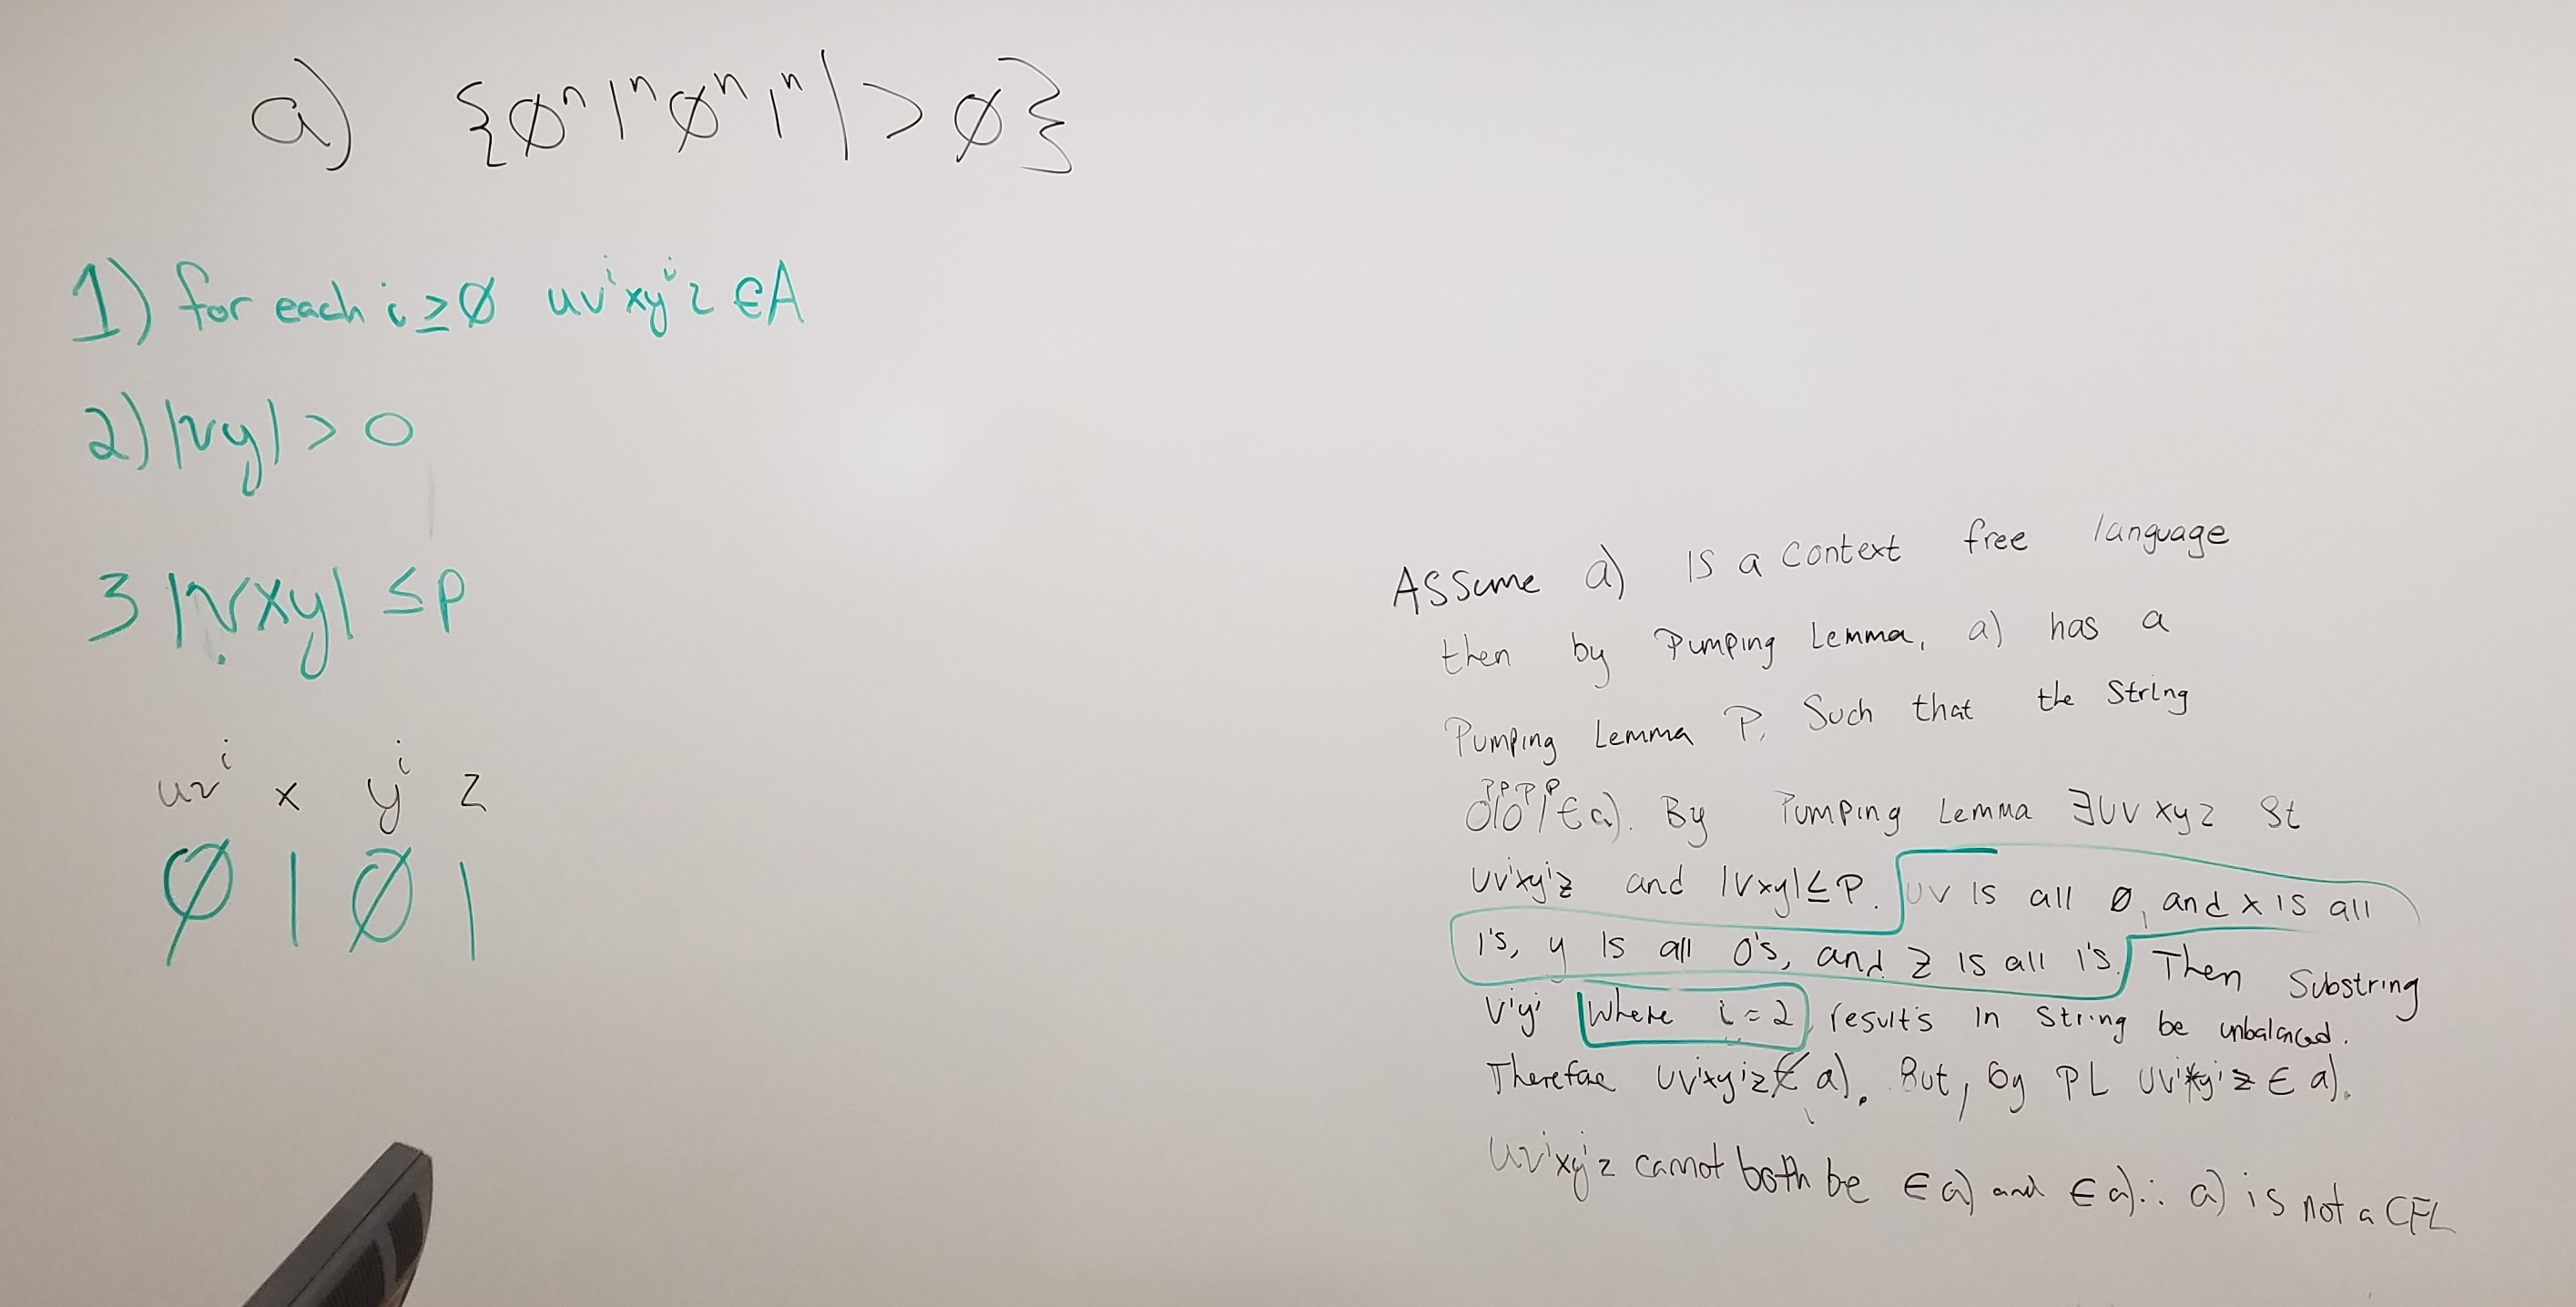 a) {∅ⁿ 1ⁿ ∅ⁿ 1ⁿ | > ∅}
1) for each i ≥ ∅ uvⁱxyⁱz ∈ A
2) |vy| > 0
3 |vxy| ≤ p
uvⁱ x yⁱ z
∅ 1 ∅ 1
Assume a) is a context free language
then by Pumping Lemma, a) has a
Pumping Lemma P. Such that the string
0ᴾ1ᴾ0ᴾ1ᴾ ∈ a). By Pumping Lemma ∃uvxyz st
uvⁱxyⁱz and |vxy| ≤ P. uv is all ∅, and x is all
1's, y is all 0's, and z is all 1's. Then substring
vⁱyⁱ where i = 2 results in string be unbalanced.
Therefore uvⁱxyⁱz ∉ a). But, by PL uvⁱxyⁱz ∈ a).
uvⁱxyⁱz cannot both be ∈ a) and ∈ a) ∴ a) is not a CFL